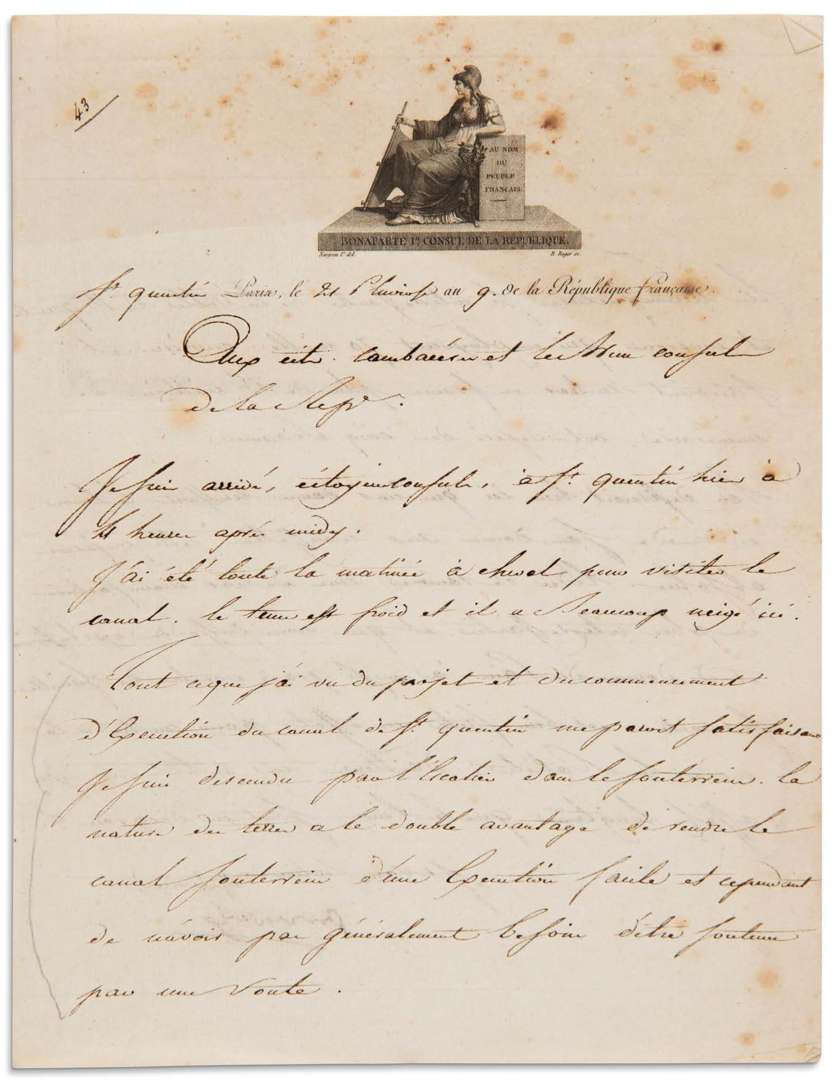 43
AU NOM
DU
PEUPLE
FRANÇAIS.
BONAPARTE 1er CONSUL DE LA REPUBLIQUE.
B. Roger sc.
St quentin Paris, le 21 Pluviose an 9. de la République française.
Aux cit. Cambacérès et le Brun consuls
de la Repe.
Je suis arrivé, citoyens consuls, à St quentin hier à
4 heures après midy.
J'ai été toute la matinée à cheval pour visiter le
canal. le tems est froid et il a Beaucoup neigé ici.
Tout ce que j'ai vu du projet et du commencement
d'Execution du canal de St quentin me paroit satisfaisant
Je suis descendu par l'Escalier dans le souterrein. la
nature des terres a le double avantage de rendre le
canal souterrein d'une Execution facile et cependant
de n'avoir pas généralement besoin d'être soutenu
par une Voute.